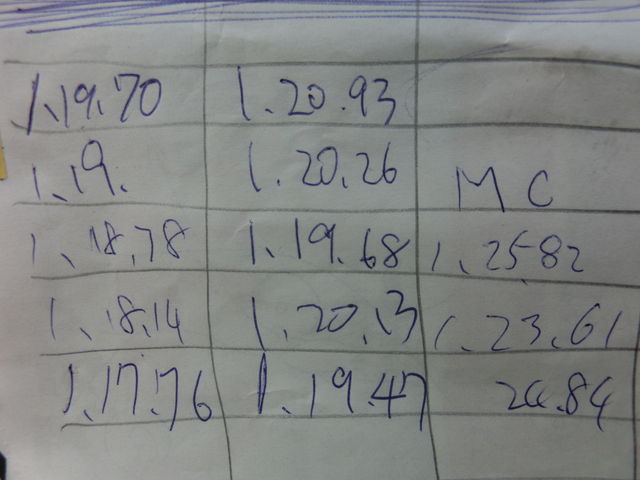 1.19.70 1.20.93
1.19. 1.20.26 M C
1.18.78 1.19.68 1.25.82
1.18.14 1.20.13 1.23.61
1.17.76 1.19.47 24.84